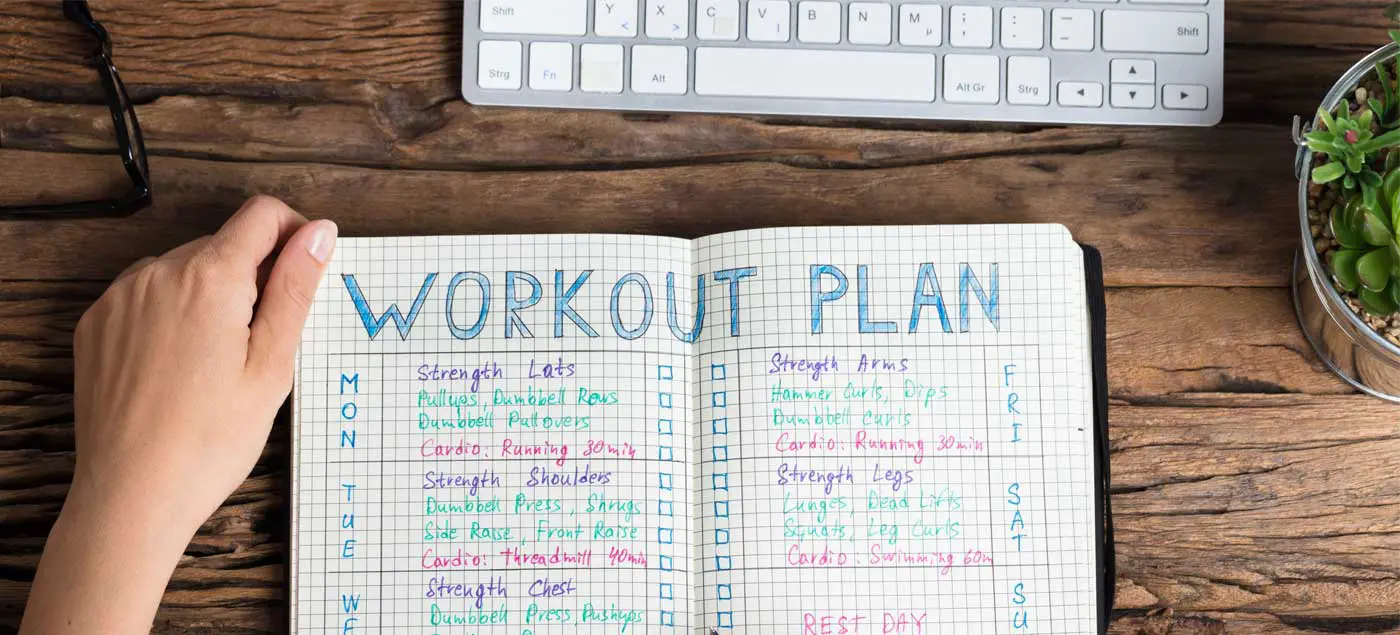 Shift Y X C V B N M ; : _ Shift
< > | µ , . -
Strg Fn Alt Alt Gr Strg
WORKOUT PLAN
MON
Strength Lats
Pullups, Dumbbell Rows
Dumbbell Pullovers
Cardio: Running 30min
TuE
Strength Shoulders
Dumbbell Press, Shrugs
Side Raise, Front Raise
Cardio: Threadmill 40min
W
Strength Chest
Dumbbell Press Pushups
Strength Arms
Hammer Curls, Dips
Dumbbell Curls
Cardio: Running 30min
FRI
Strength Legs
Lunges, Dead Lifts
Squats, Leg Curls
Cardio: Swimming 60m
SAT
REST DAY
SU